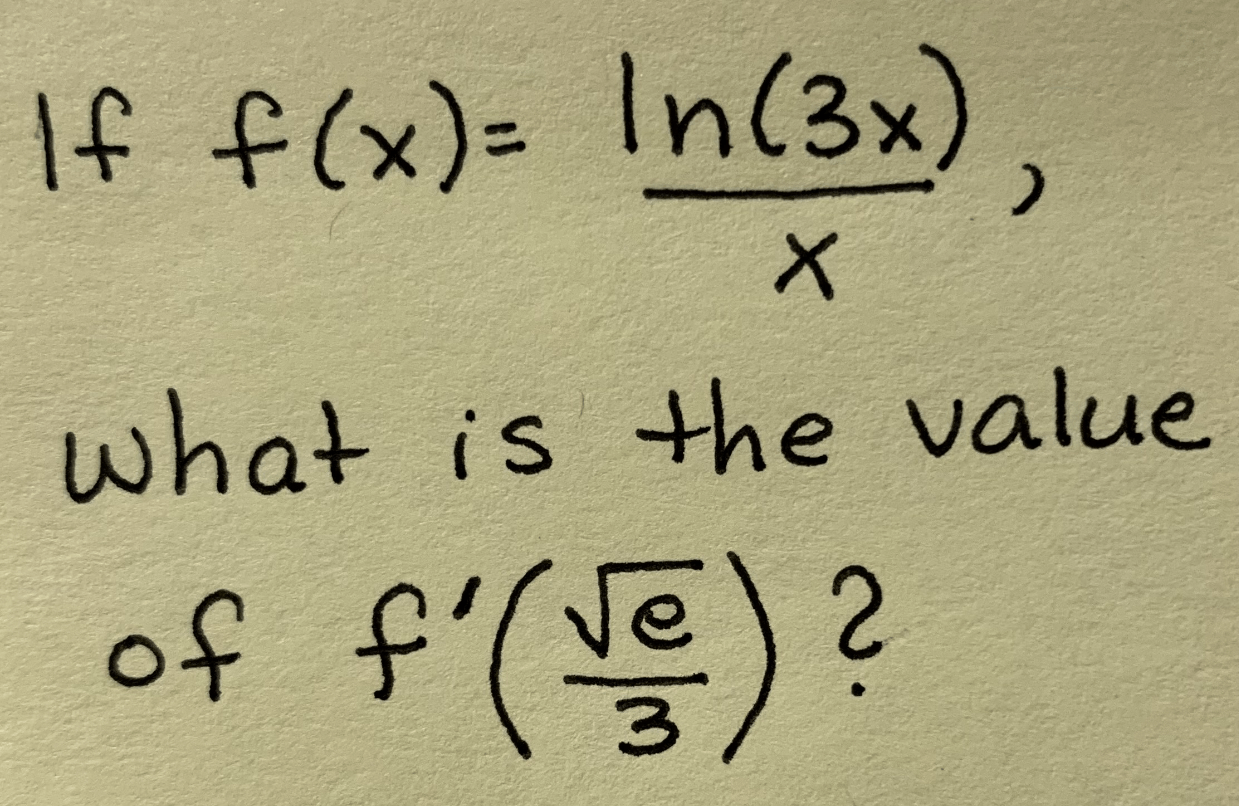 If f(x)= ln(3x)/x ,
what is the value
of f'(√e/3)?